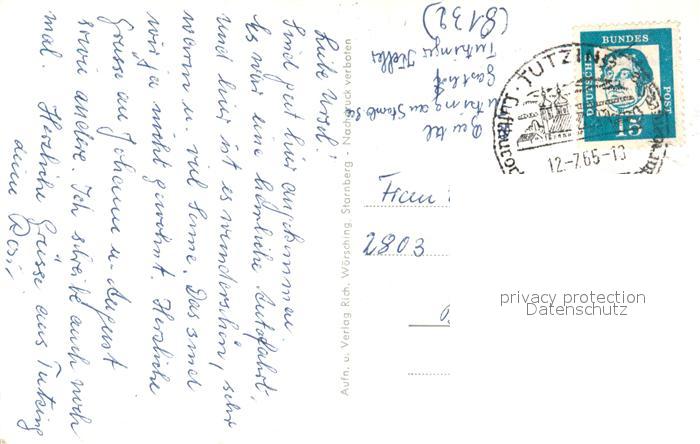 Liebe Ursel!
Sind gut hier angekommen.
Es war eine herrliche Autofahrt.
und hier ist es wunderschön, sehr
warm u. viel Sonne. Das sind
wir ja nicht gewohnt. Herzliche
Grüsse an Johann u. August
sowie andere. Ich schreibe auch noch
mal. Herzliche Grüsse aus Tutzing
deine Resi
Aufn. u. Verlag Rich. Wörsching, Starnberg - Nachdruck verboten
Tutzing am Starnberger See
Gasthof
Tutzinger Keller
(8132)
Frau
2803
DEUTSCHE
BUNDES
POST
15
TUTZING
12-7.65-18
LUFTKURORT
privacy protection
Datenschutz